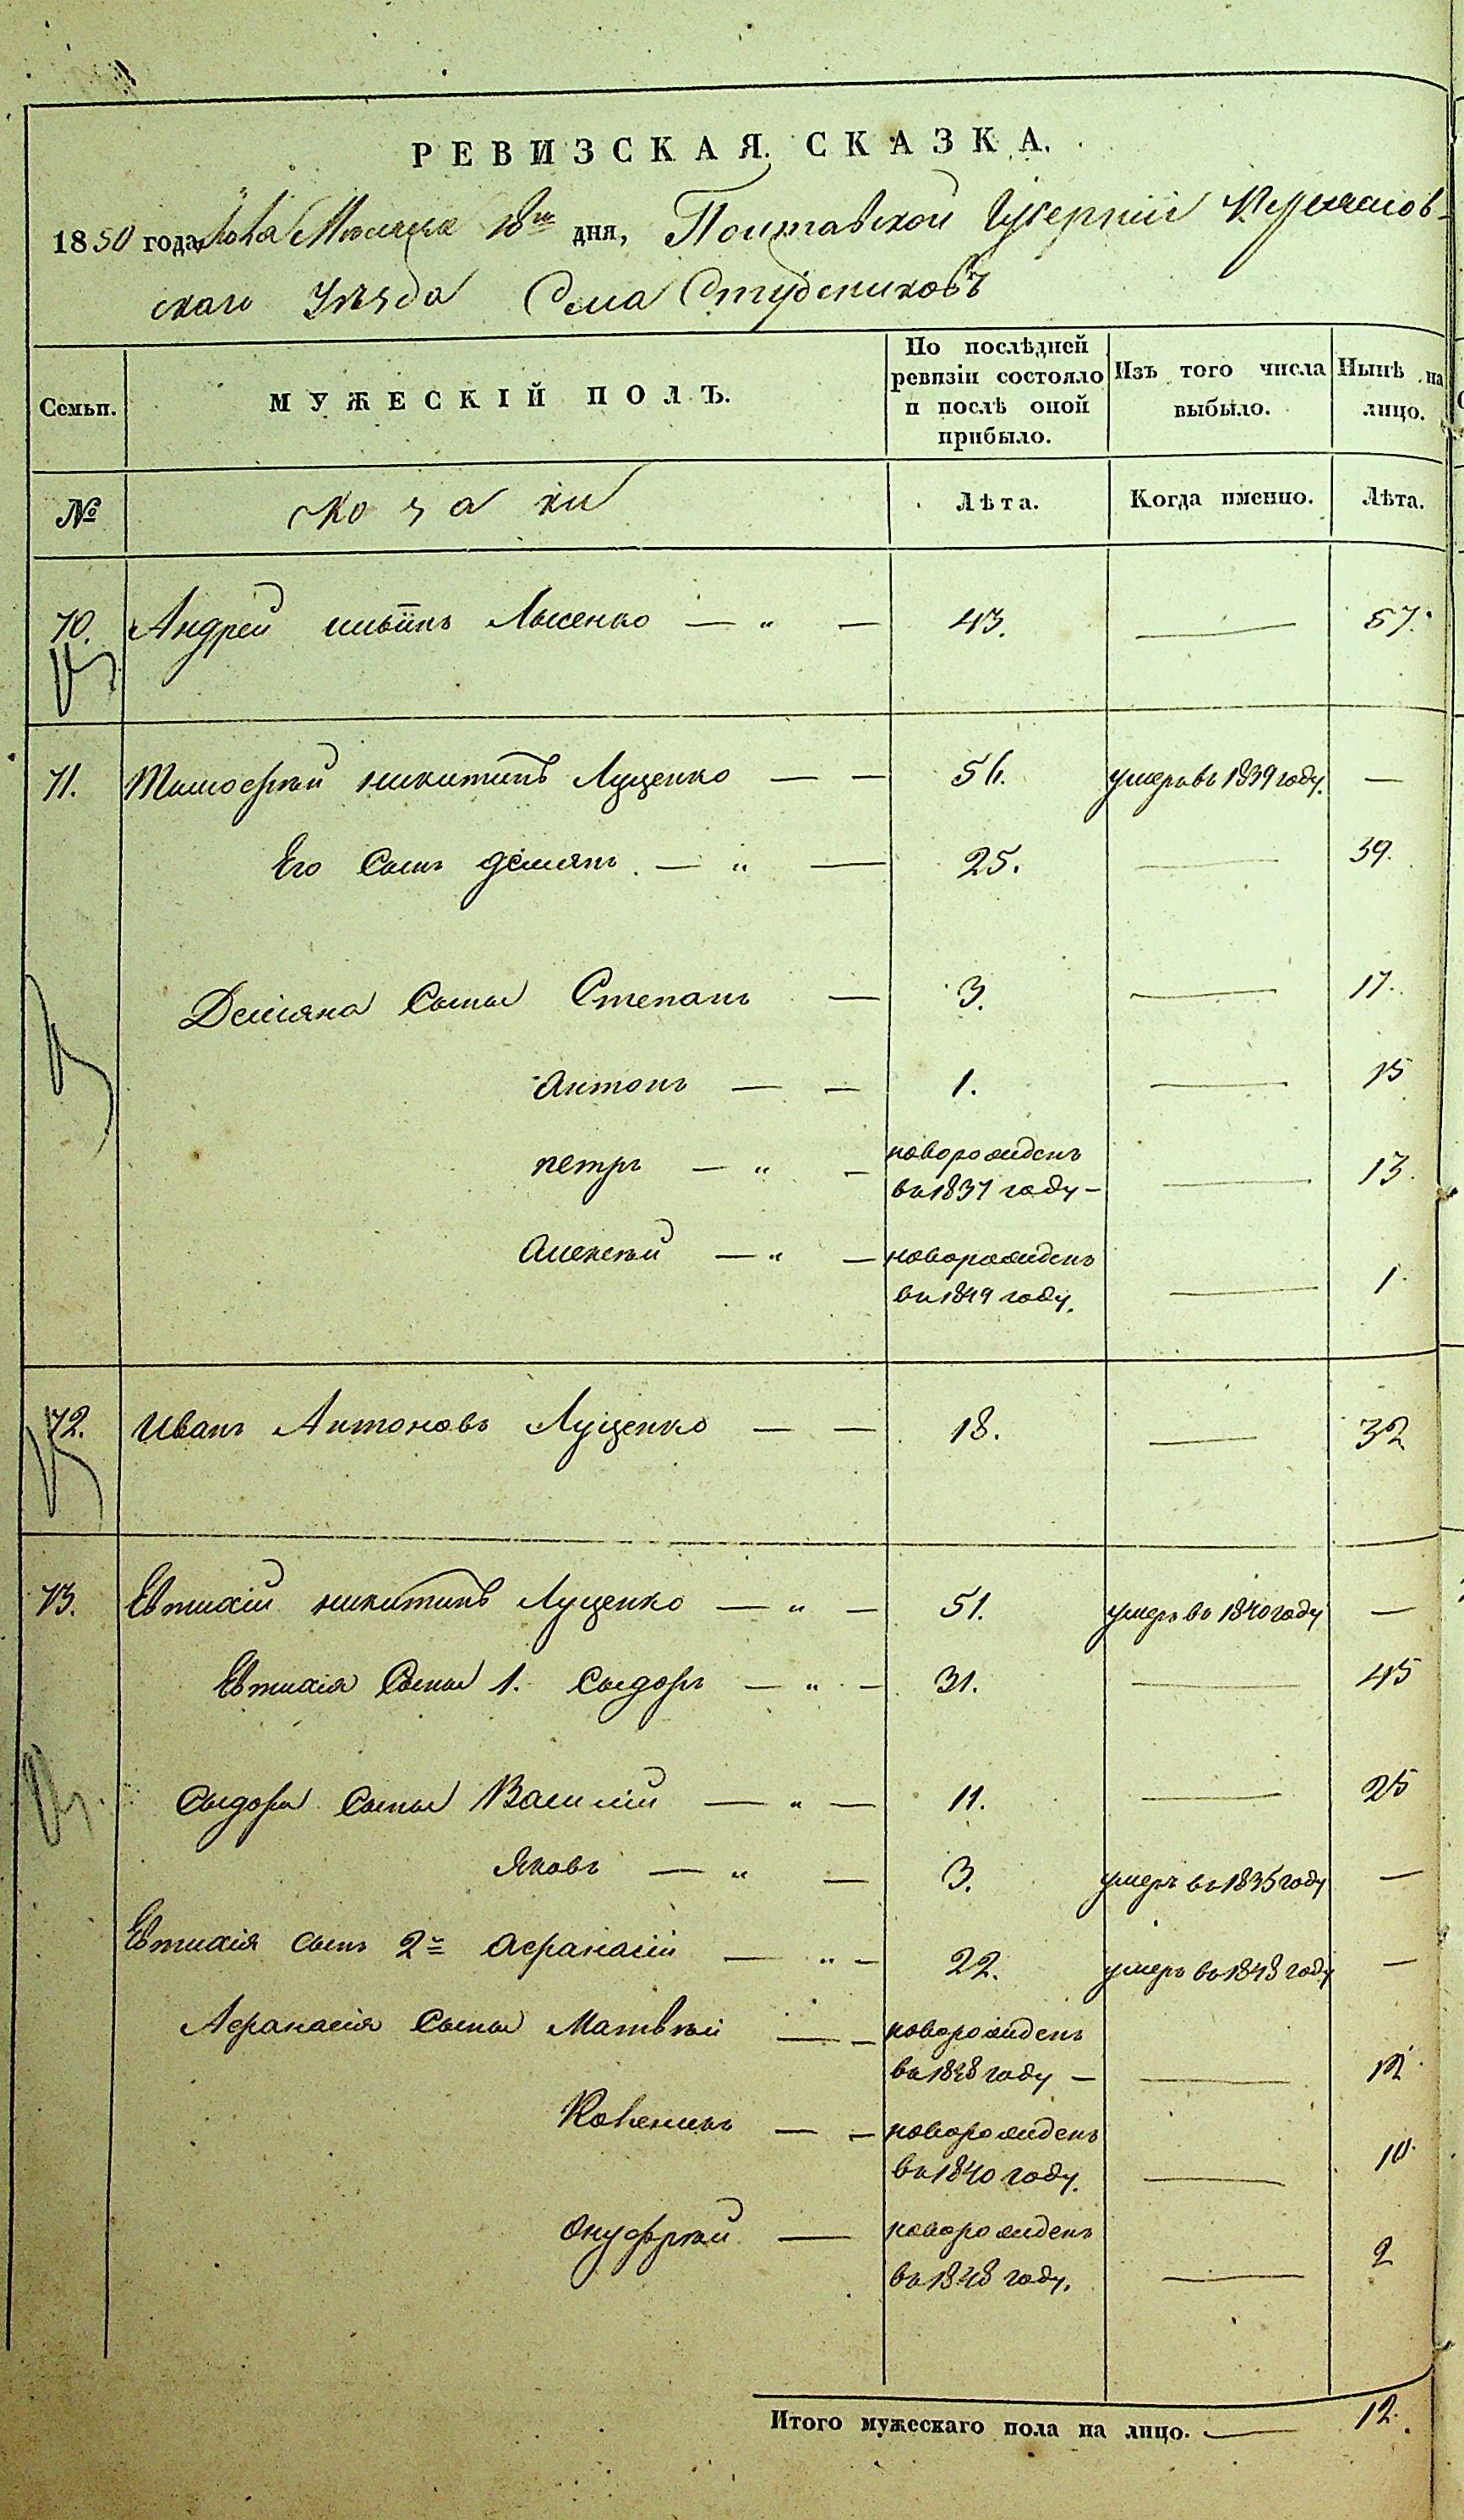 РЕВИЗСКАЯ СКАЗКА.
1850 года Мѣсяца 18го дня, Полтавской Губерніи
скаго Уѣзда Села Студениковъ
Семьи.
МУЖЕСКІЙ ПОЛЪ.
По послѣдней ревизіи состояло и послѣ оной прибыло.
Изъ того числа выбыло.
Нынѣ на лицо.
№
козаки
Лѣта.
Когда именно.
Лѣта.
70. Андрей ильинъ Лысенко — „ — 43. — 57.
71. Тимофѣй никитинъ Луценко — — 56. умеръ въ 1839 году. —
Его Сынъ демянъ — „ — 25. — 39.
Деміяна Сыны Степанъ — 3. — 17.
Антонъ — — 1. — 15
петръ — „ — новорожденъ
въ 1837 году — — 13.
Алексѣй — „ — новорожденъ
въ 1849 году. — 1.
72. Иванъ Антоновъ Луценко — — 18. — 32
73. Евтихій никитинъ Луценко — „ — 51. умеръ въ 1840 году —
Евтихія Сыны 1. Сыдоръ — „ — 31. — 45
Сыдора Сыны Василій — „ — 11. — 25
Яковъ — „ — 3. умеръ въ 1835 году —
Евтихія сынъ 2й Афранасій — „ — 22. умеръ въ 1848 году —
Афанасія Сыны Матвѣй — — новорожденъ
въ 1838 году — — 12.
— — новорожденъ
въ 1840 году. — 10.
Онуфрѣй — новорожденъ
въ 1848 году. — 2
Итого мужескаго пола на лицо. — 12.